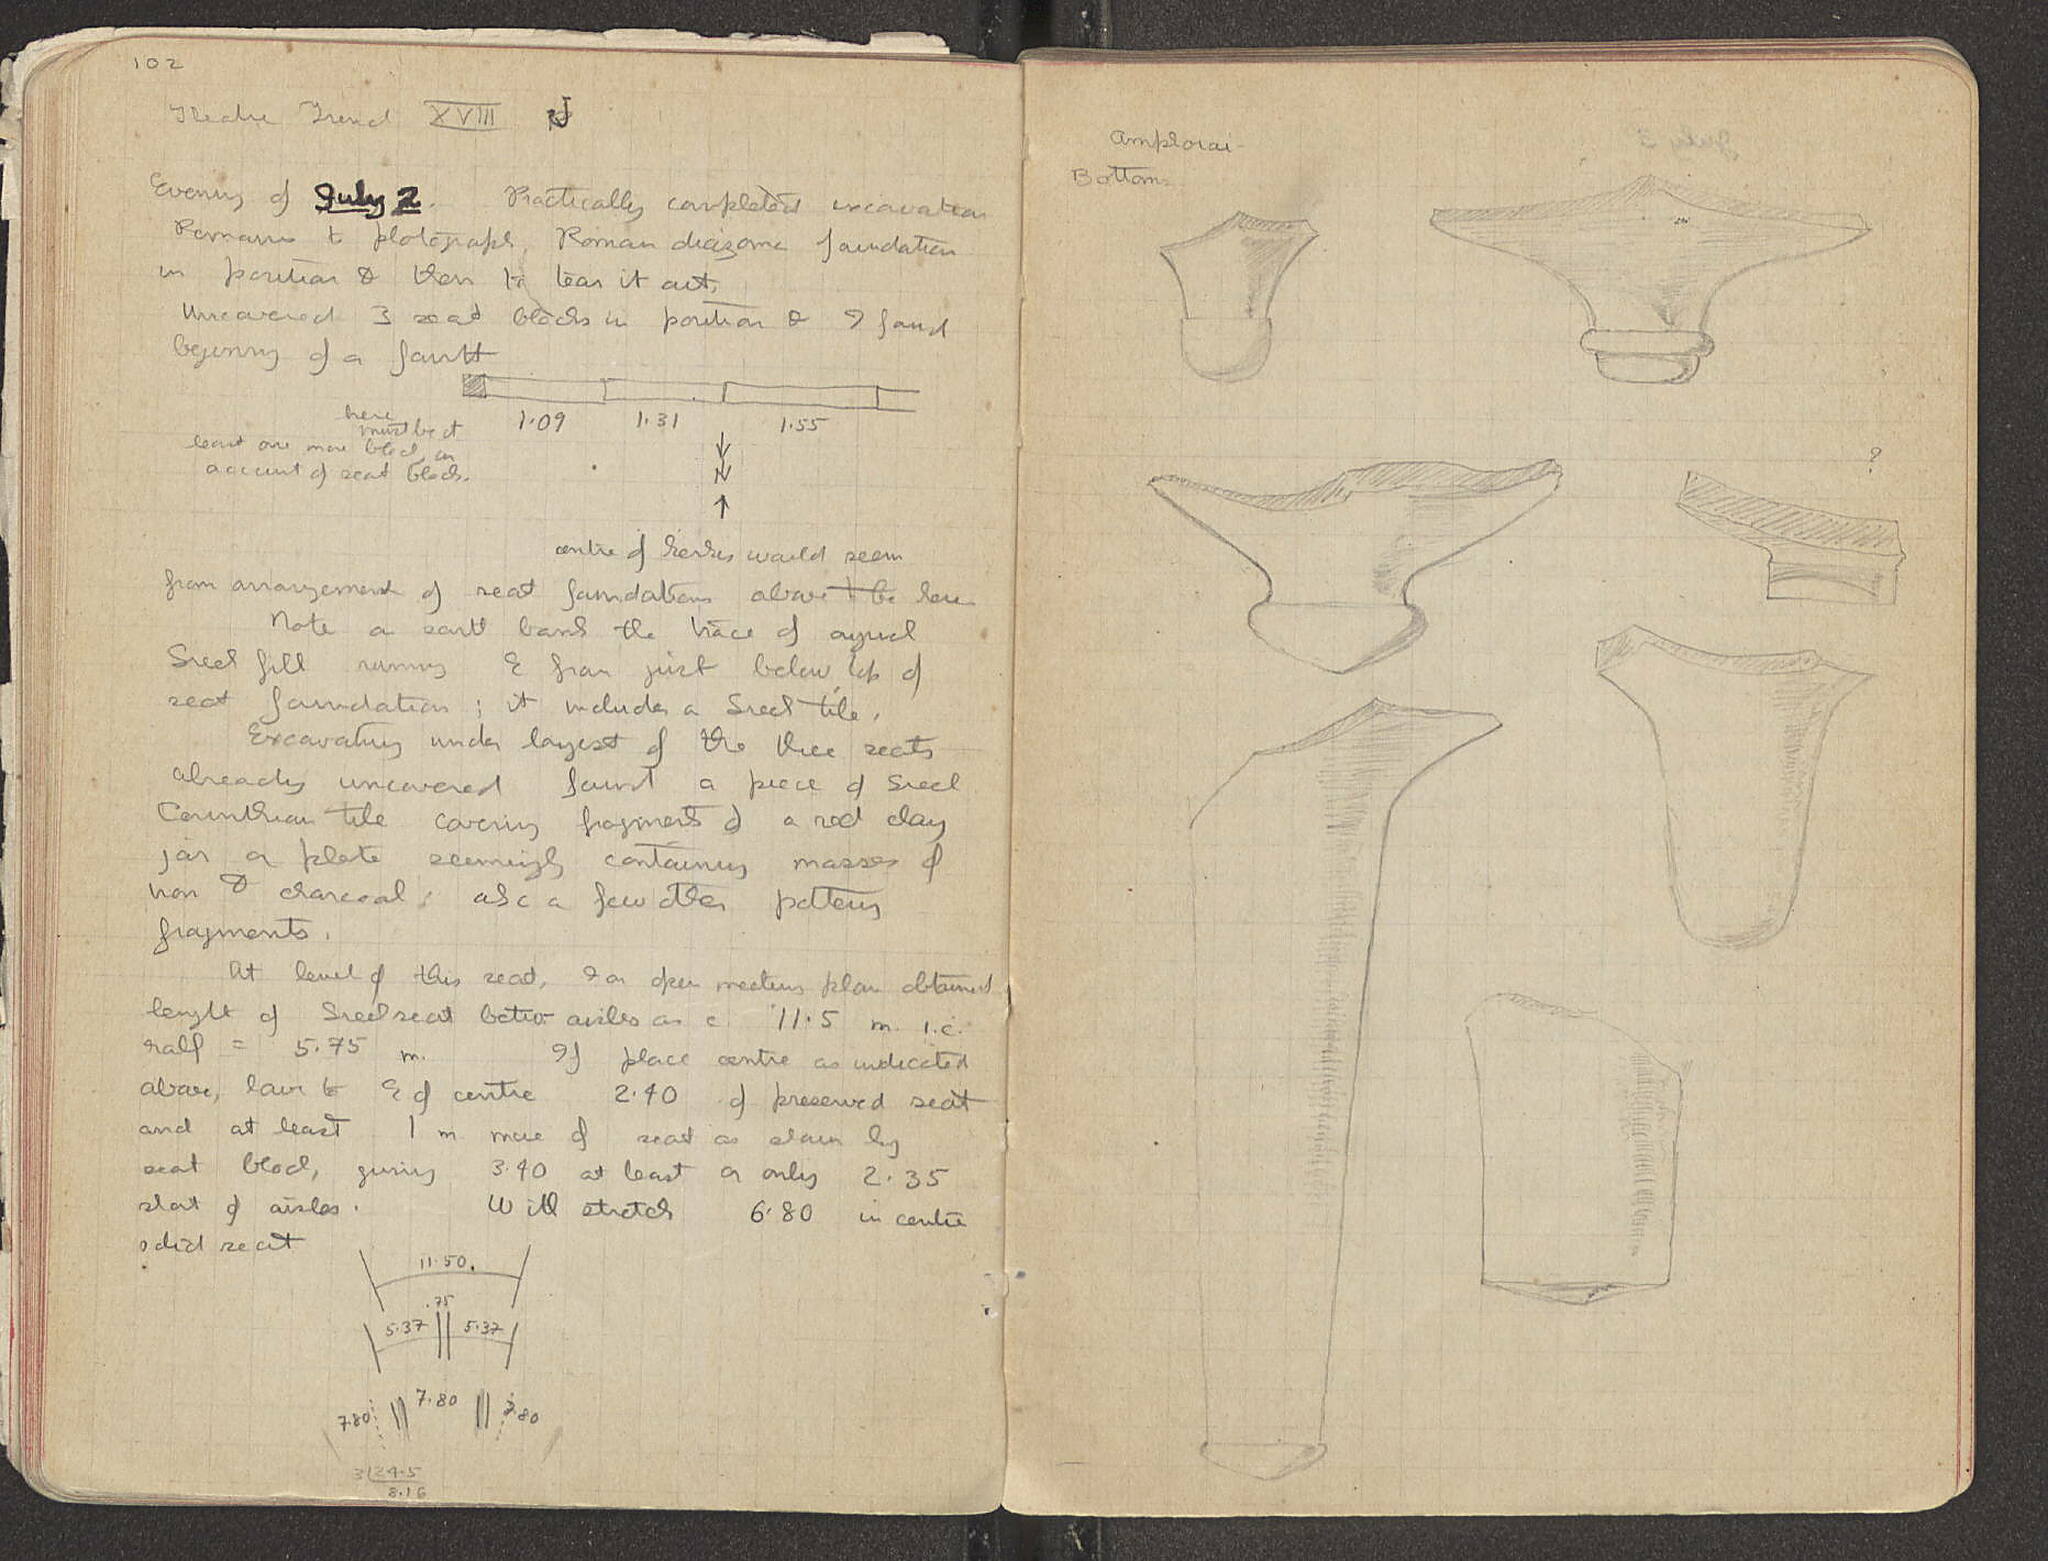 102
Theatre Trench XVIII N
Evening of July 2. Practically completed excavation
Remains to photograph Roman diazoma foundation
in position & then to tear it out.
Uncovered 3 seat blocks in position & found
beginning of a fourth
1.09 1.31 1.55
here
must be at
least one more block on
account of seat block.
N
centre of kerkis would seem
from arrangement of seat foundations above to be here
Note a earth bank the trace of original
Greek fill running E from just below top of
seat foundations; it includes a Greek tile.
Excavating under largest of the three seats
already uncovered found a piece of Greek
Corinthian tile covering fragments of a red clay
jar or plate seemingly containing masses of
iron & charcoal; also a few other pottery
fragments.
At level of this seat, plan obtained
length of Greek seat betw aisles as c. 11.5 m. i.e.
half = 5.75 m. If place centre as indicated
above, have to E of centre 2.40 of preserved seat
and at least 1 m more of seat as shown by
seat block, giving 3.40 at least or only 2.35
short of aisles. With stretch 6.80 in centre
solid seat
11.50.
.75
5.37 5.37
7.80 7.80 7.80
3|24.5
8.16
Amphorai
Bottoms
?